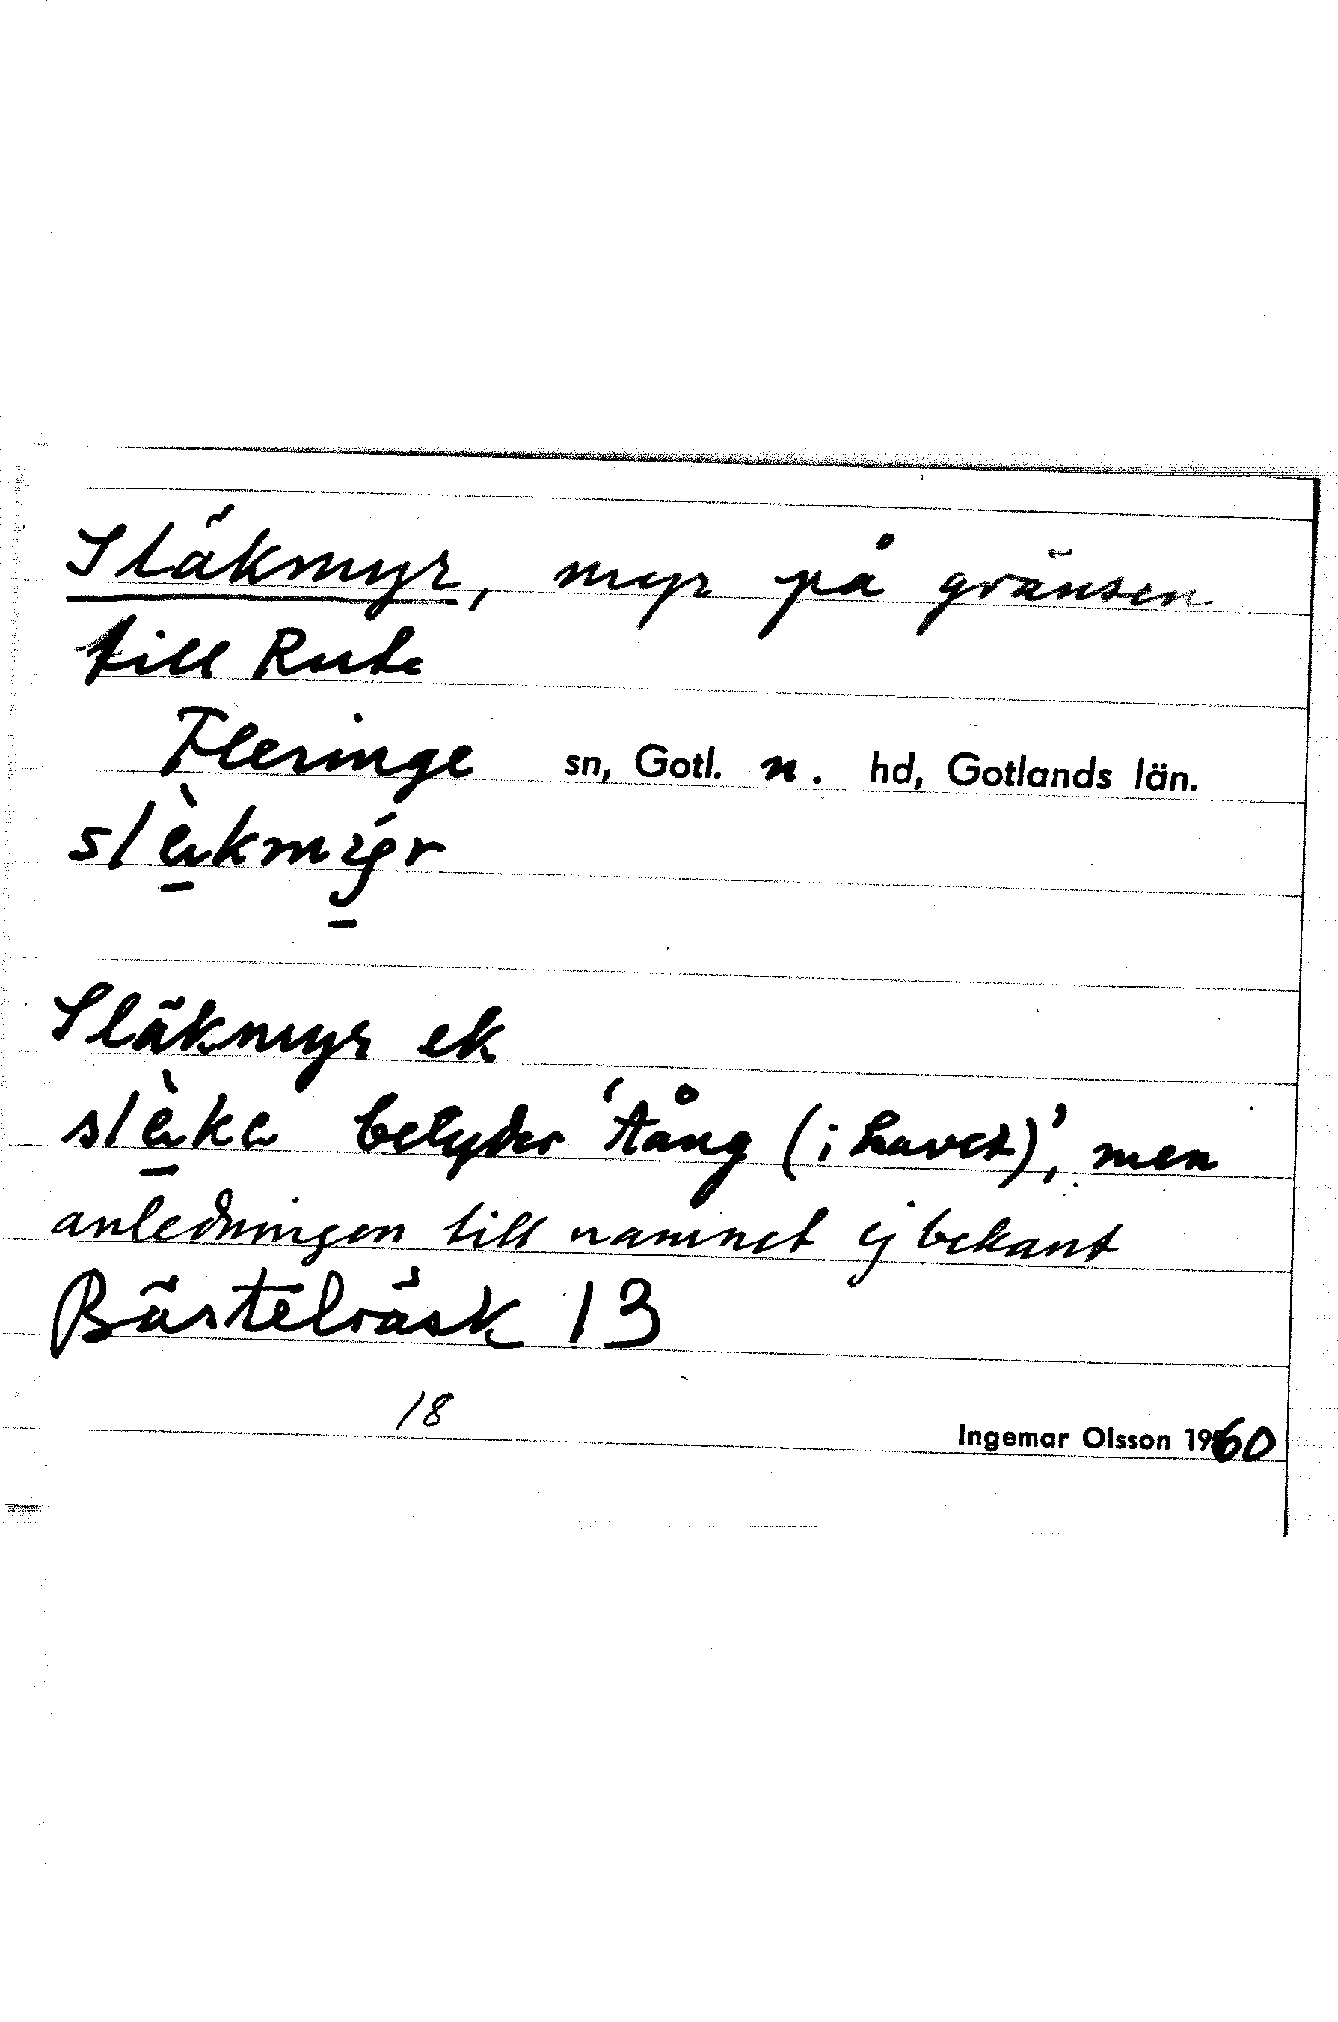 Släkmyr, myr på gränsen
till Rute
Fleringe sn, Gotl. n. hd, Gotlands län.
Släkmyr ek
betyder 'tång (i havet)', men
anledningen till namnet ej bekant
Bästelräsk 13
18
Ingemar Olsson 1960